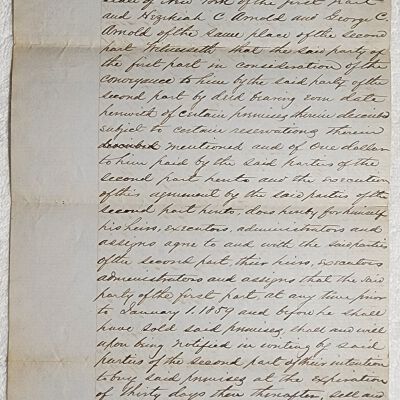 State of New York of the first part
and Hezekiah C Arnold and George C.
Arnold of the same place of the second
part Witnesseth that the said party of
the first part in consideration of the
conveyance to him by the said party of the
second part by deed bearing even date
herewith of certain premises therein described
subject to certain reservations therein
described mentioned and of One dollar
to him paid by the said parties of the
second part hereto and the execution
of this agreement by the said parties of the
second part hereto, does hereby for himself
his heirs, executors, administrators and
assigns agree to and with the said parties
of the second part, their heirs, executors
administrators and assigns that the said
party of the first part, at any time prior
to January 1. 1859 and before he shall
have sold said premises, shall and will
upon being notified in writing by said
parties of the second part of their intention
to buy said premises at the expiration
of thirty days then thereafter, sell and